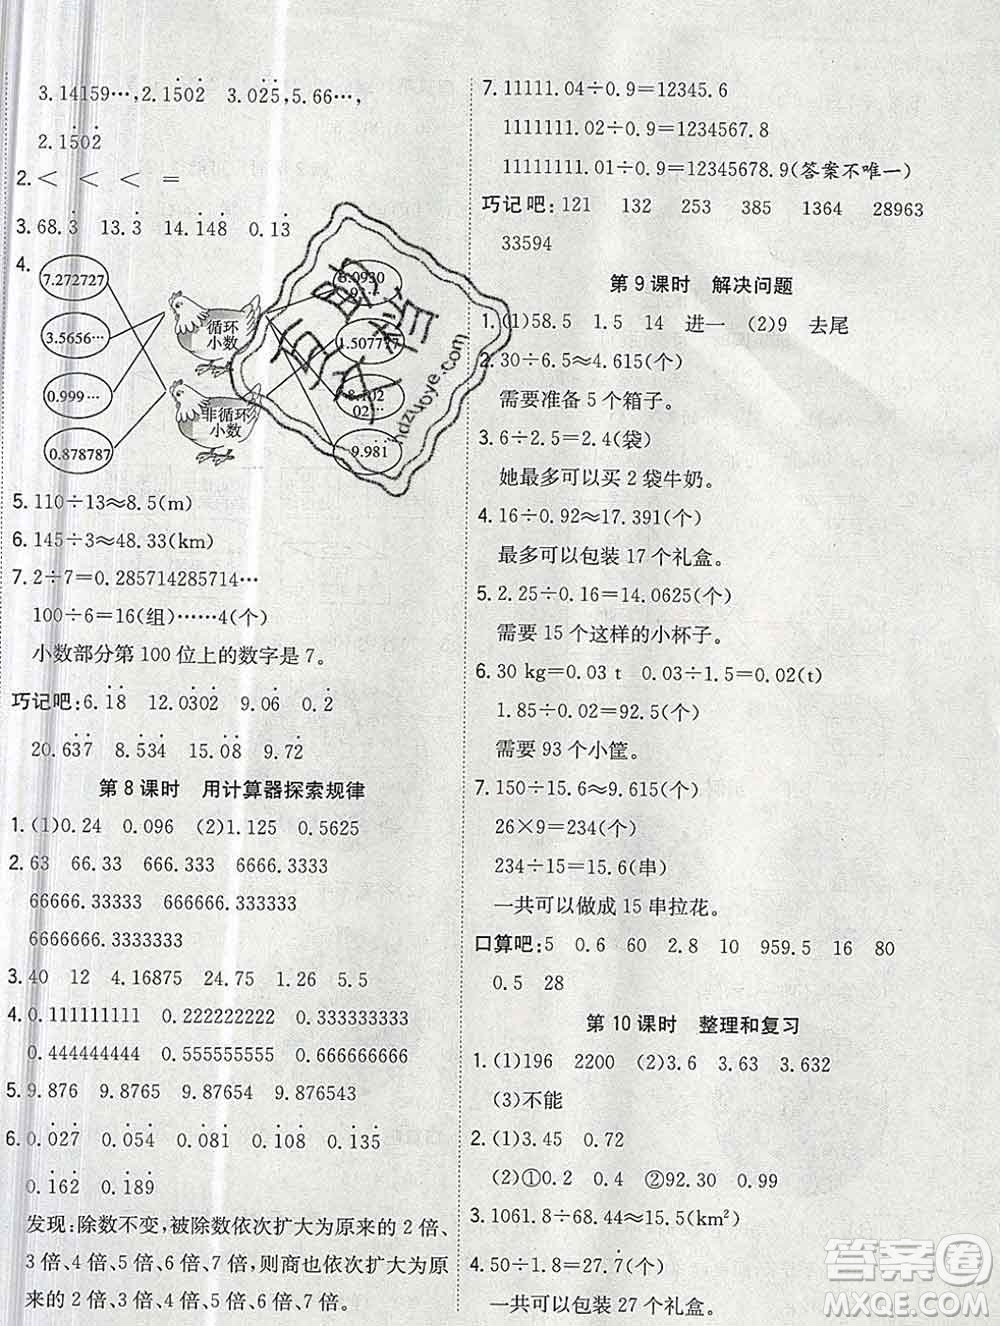 3.14159…,2.15̇02̇ 3.02̇5̇,5.66…,
2.15̇02̇
2. < < < =
3. 68.3̇ 13.3̇ 14.1̇48̇ 0.13̇
4.
7.272727
3.5656…
0.999…
0.878787
循环
小数
非循环
小数
1.507777
9.981
5. 110÷13≈8.5(m)
6. 145÷3≈48.33(km)
7. 2÷7=0.285714285714…
100÷6=16(组)……4(个)
小数部分第 100 位上的数字是 7。
巧记吧:6.1̇8̇ 12.03̇02̇ 9.02̇ 0.2̇
20.63̇7̇ 8.5̇34̇ 15.0̇8̇ 9.72̇
第 8 课时 用计算器探索规律
1. (1)0.24 0.096 (2)1.125 0.5625
2. 63 66.33 666.333 6666.3333
66666.33333 666666.333333
6666666.3333333
3. 40 12 4.16875 24.75 1.26 5.5
4. 0.111111111 0.222222222 0.333333333
0.444444444 0.555555555 0.666666666
5. 9.876 9.8765 9.87654 9.876543
6. 0.0̇27̇ 0.0̇54̇ 0.0̇81̇ 0.1̇08̇ 0.1̇35̇
0.1̇62̇ 0.1̇89̇
发现:除数不变,被除数依次扩大为原来的 2 倍、
3 倍、4 倍、5 倍、6 倍、7 倍,则商也依次扩大为原
来的 2 倍、3 倍、4 倍、5 倍、6 倍、7 倍。
7. 11111.04÷0.9=12345.6
1111111.02÷0.9=1234567.8
11111111.01÷0.9=12345678.9(答案不唯一)
巧记吧:121 132 253 385 1364 28963
33594
第 9 课时 解决问题
1. (1)58.5 1.5 14 进一 (2)9 去尾
2. 30÷6.5≈4.615(个)
需要准备 5 个箱子。
3. 6÷2.5=2.4(袋)
她最多可以买 2 袋牛奶。
4. 16÷0.92≈17.391(个)
最多可以包装 17 个礼盒。
5. 2.25÷0.16=14.0625(个)
需要 15 个这样的小杯子。
6. 30 kg=0.03 t 0.03÷1.5=0.02(t)
1.85÷0.02=92.5(个)
需要 93 个小筐。
7. 150÷15.6≈9.615(个)
26×9=234(个)
234÷15=15.6(串)
一共可以做成 15 串拉花。
口算吧:5 0.6 60 2.8 10 959.5 16 80
0.5 28
第 10 课时 整理和复习
1. (1)196 2200 (2)3.6 3.63 3.632
(3)不能
2. (1)3.45 0.72
(2)①0.2 0.4 ②92.30 0.99
3. 1061.8÷68.44≈15.5(km²)
4. 50÷1.8=27.7̇(个)
一共可以包装 27 个礼盒。
答案圈
MXQE.COM